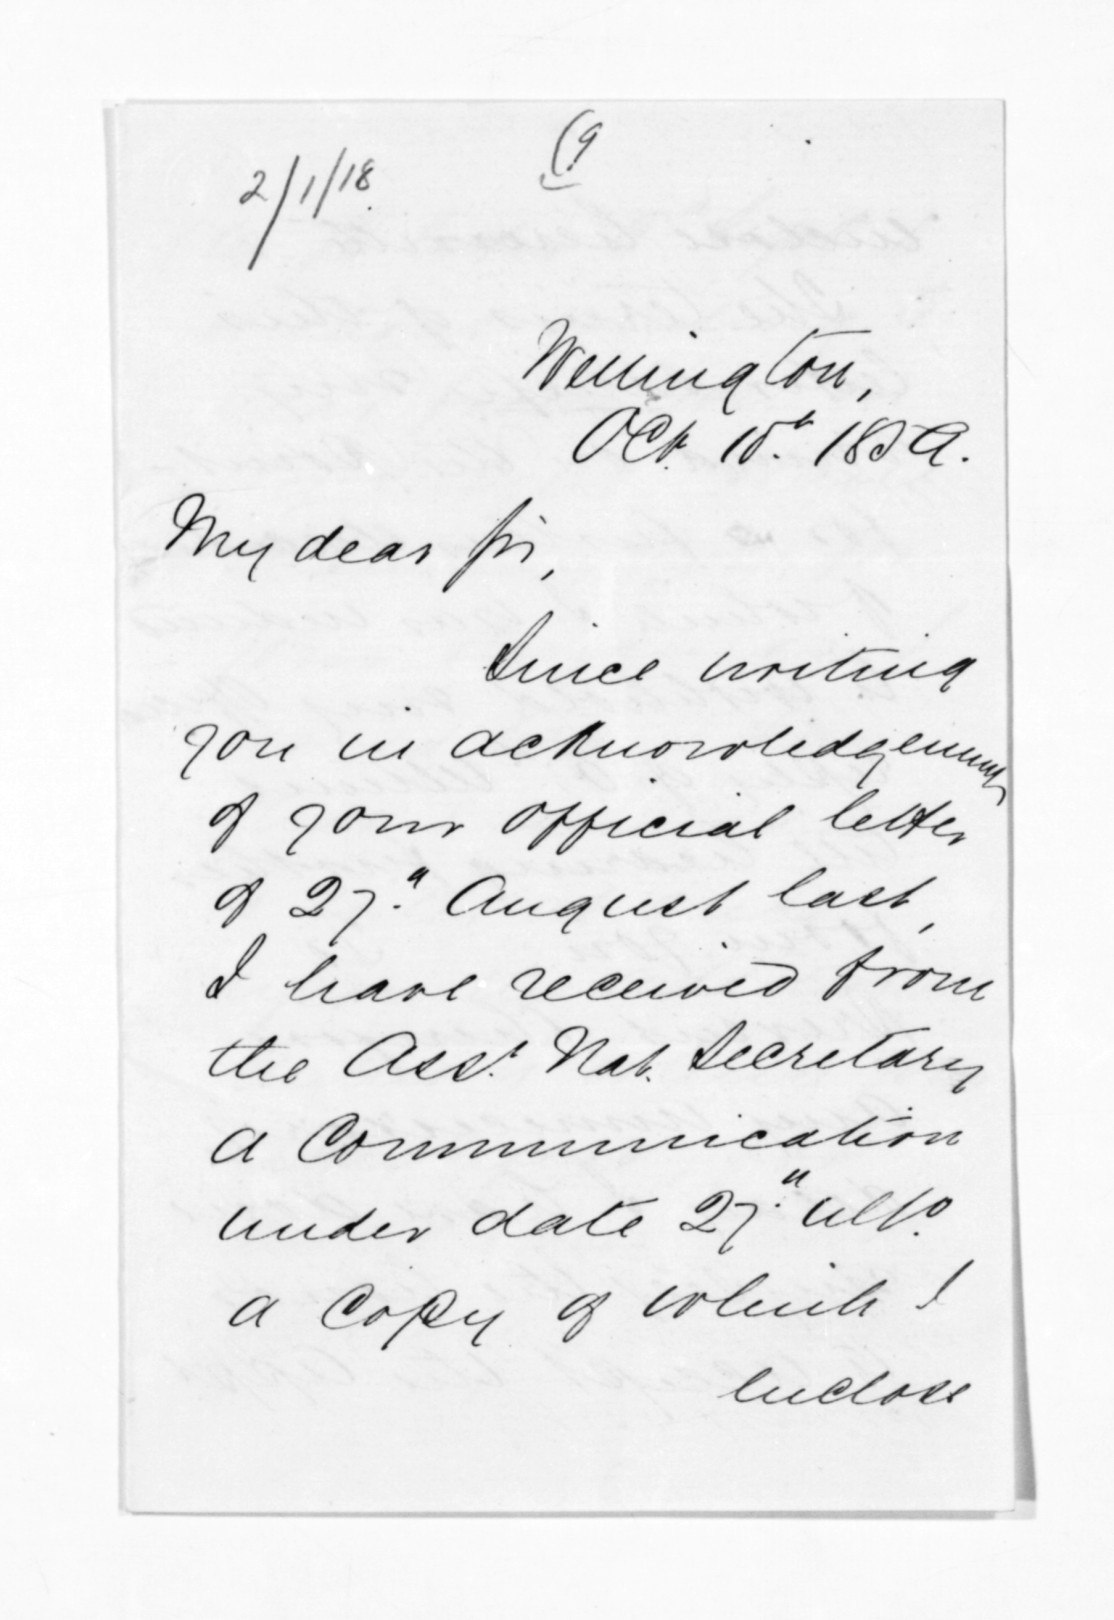 2/1/18.
(9
Wellington,
Oct. 15th. 1859.
My dear Sir,
Since writing
you in acknowledgement
of your official letter
of 27th. August last,
I have received from
the Asst. Nat. Secretary
a Communication
under date 27th. ulto.
a Copy of which I
enclose